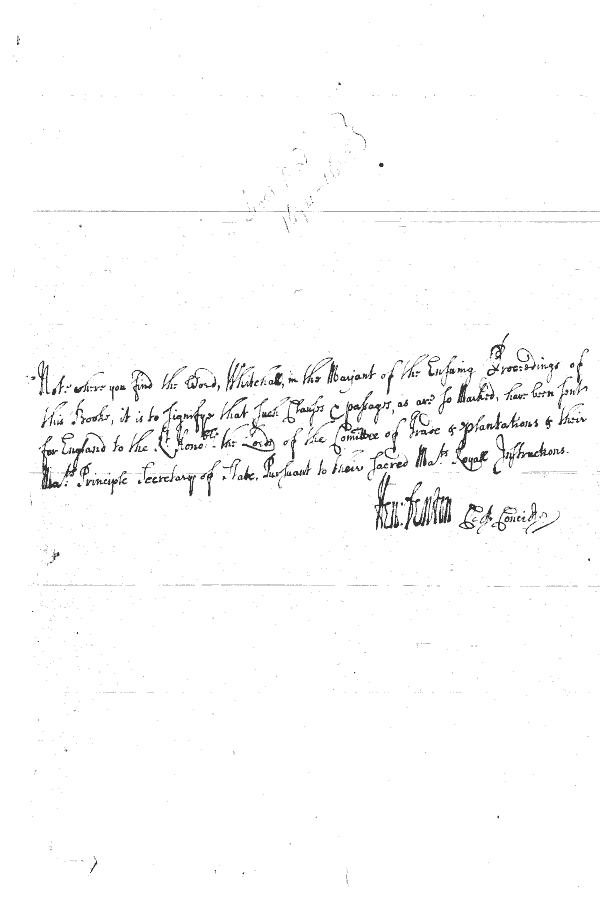 Note where you find the Word, Whitehall, in the Marjant of the Ensuing Proceedings of
this Booke, it is to signifye that such Clauses & passages, as are so Marked, have been sent
for England to the Rt. Honoble. the Lords of the Comittee of Trade & plantations & their
Mats. Principle Secretary of State, Pursuant to their Sacred Mats. Royall Instructions.
Hen: Fenton